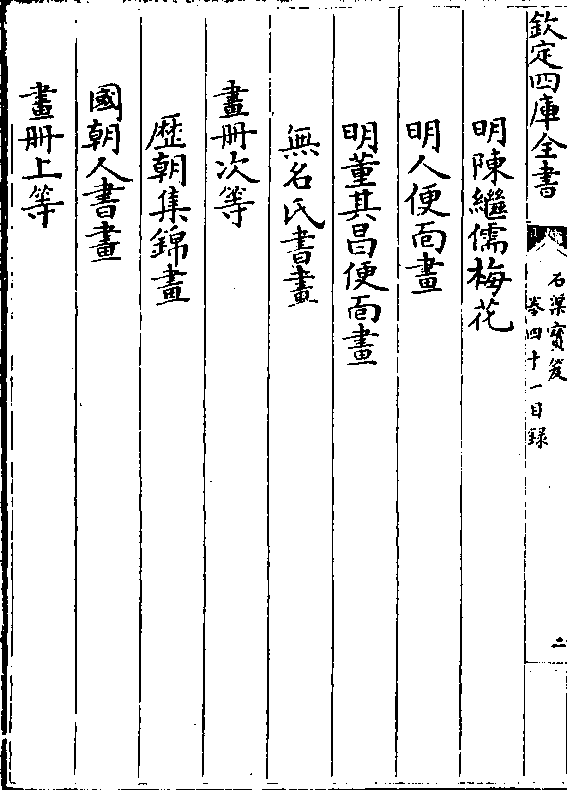 欽定四庫全書
石渠寶笈
卷四十一目録
二
明陳繼儒梅花
明人便面畫
明董其昌便面畫
無名氏書畫
畫冊次等
歷朝集錦畫
國朝人書畫
畫冊上等